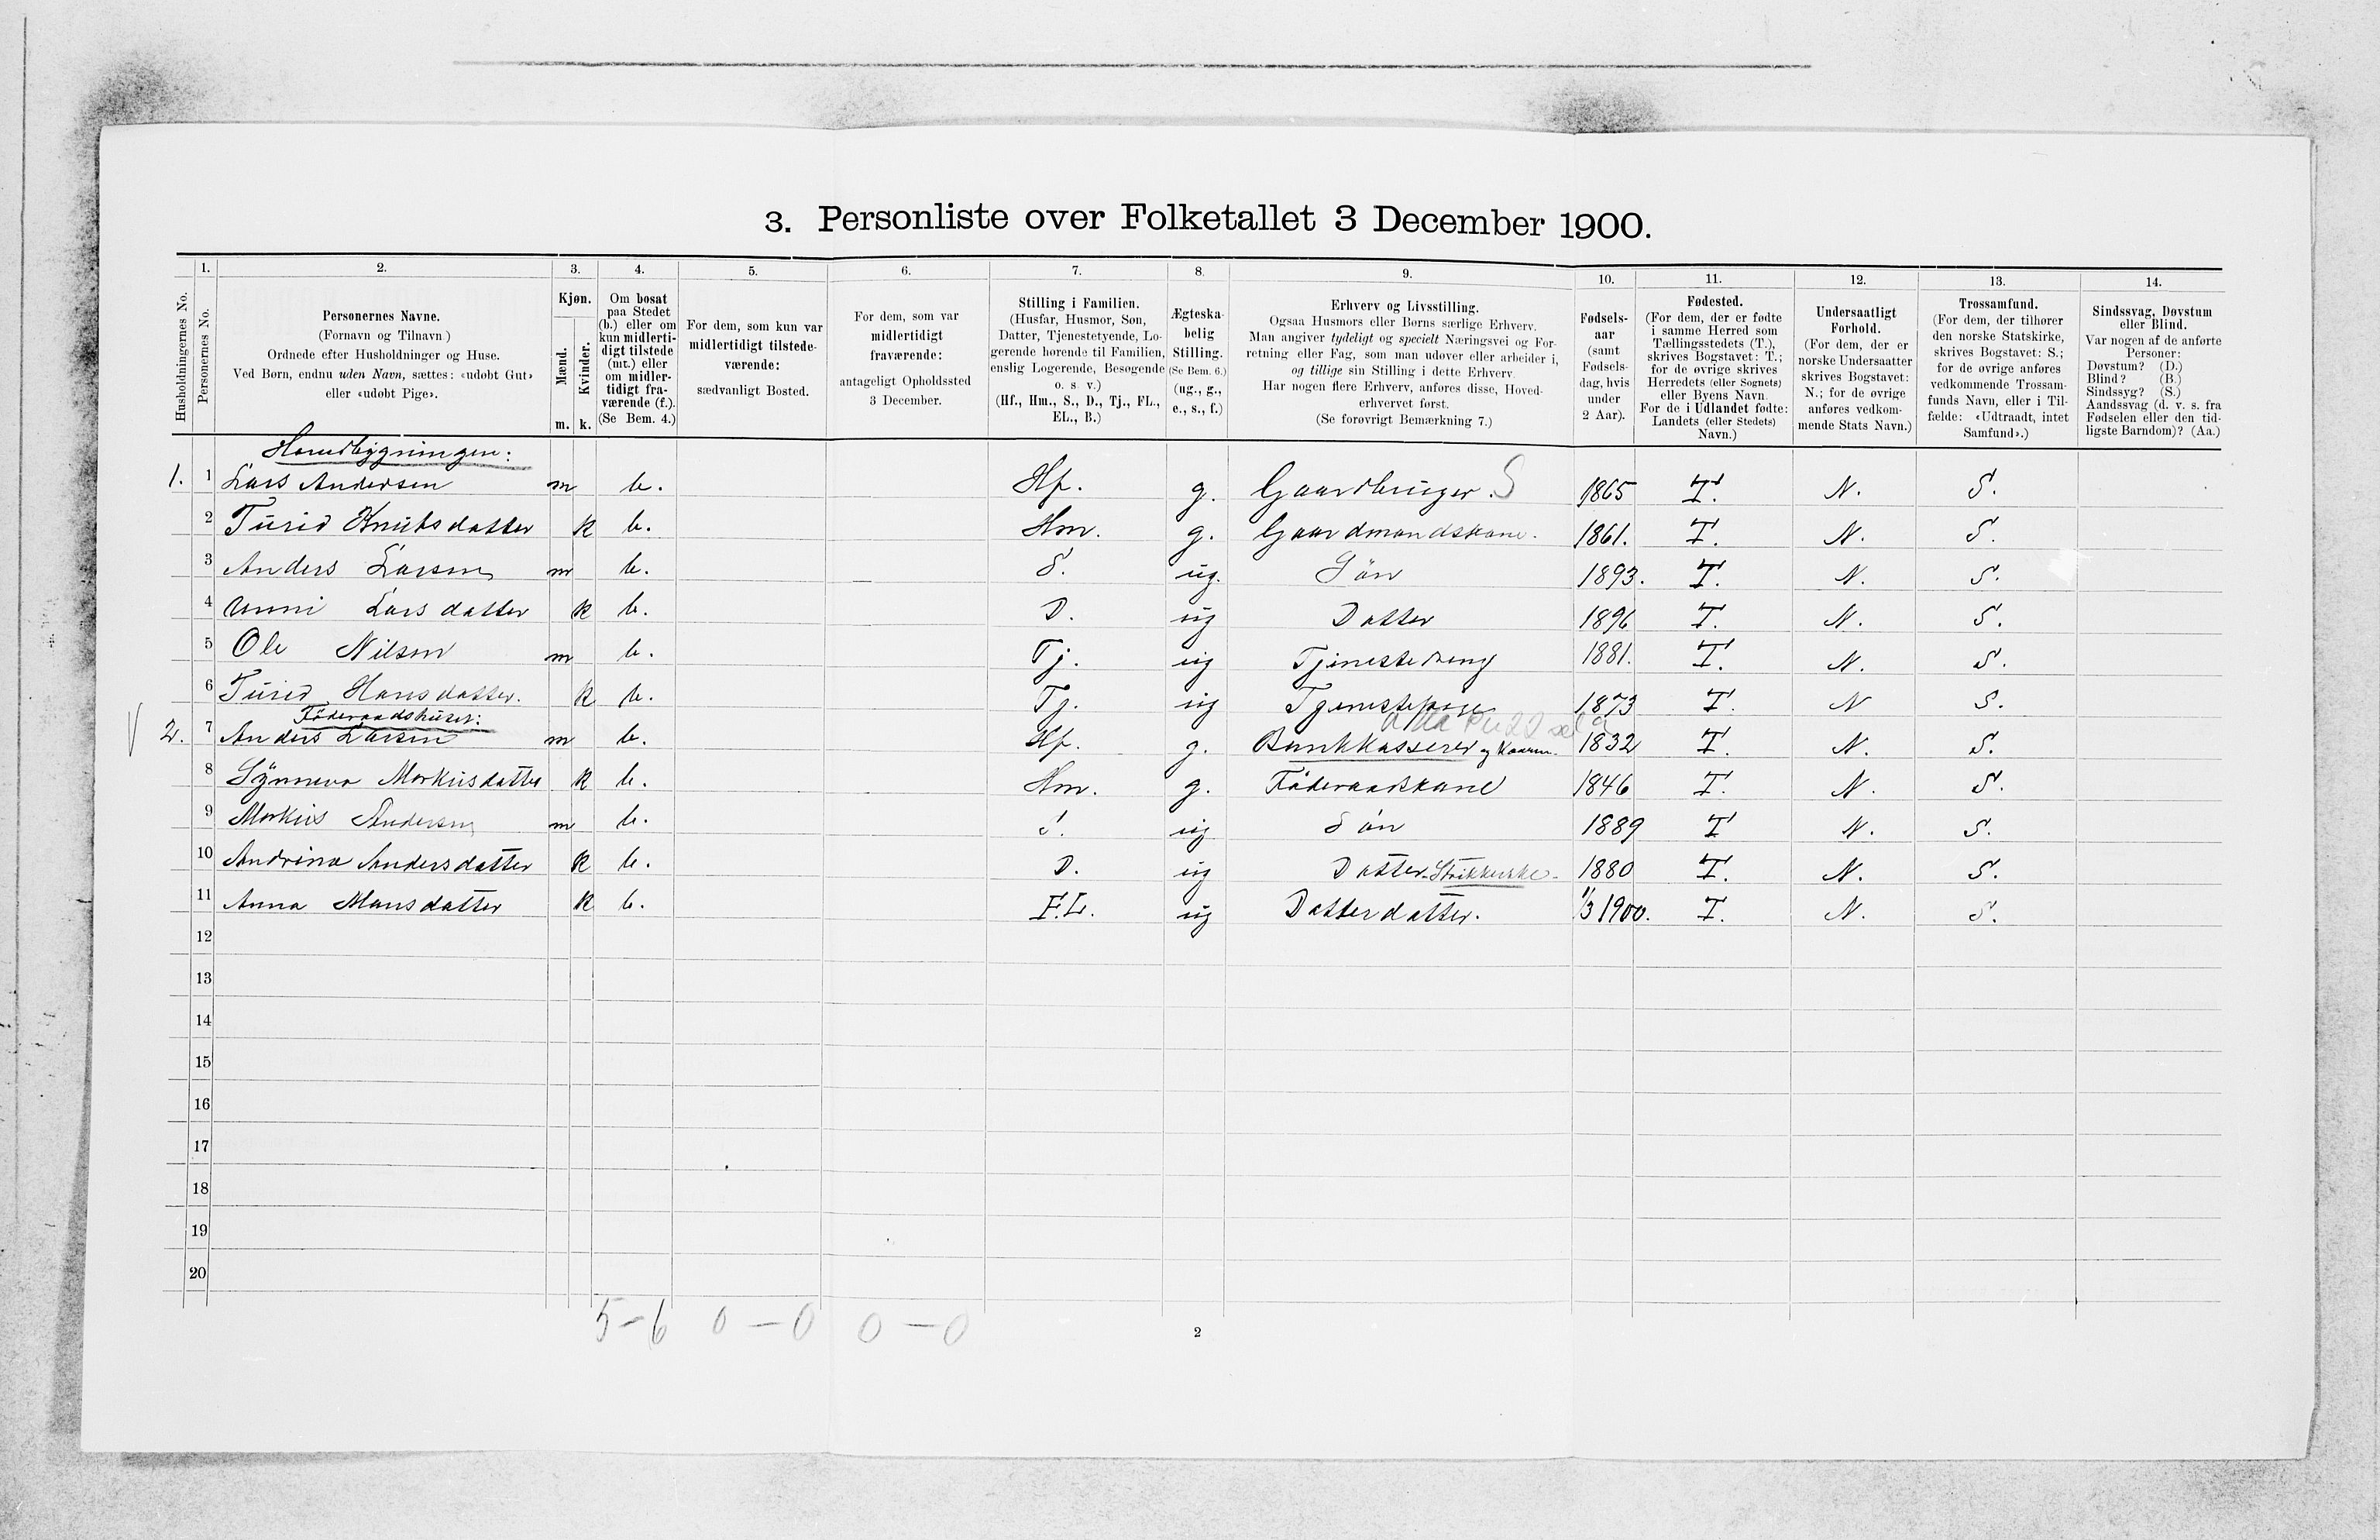 3. Personliste over Folketallet 3 December 1900.
1. 2. 3. 4. 5. 6. 7. 8. 9. 10. 11. 12. 13. 14.
Husholdningernes No.
Personernes No.
Personernes Navne.
(Fornavn og Tilnavn.)
Ordnede efter Husholdninger og Huse.
Ved Børn, endnu uden Navn, sættes: «udøbt Gut»
eller «udøbt Pige».
Kjøn.
Mænd.
Kvinder.
m. k.
Om bosat
paa Stedet
(b.) eller om
kun midlerti-
digt tilstede
(mt.) eller
om midler-
tidigt fra-
værende (f.).
(Se Bem. 4.)
For dem, som kun var
midlertidigt tilstede-
værende:
sædvanligt Bosted.
For dem, som var
midlertidigt
fraværende:
antageligt Opholdssted
3 December.
Stilling i Familien.
(Husfar, Husmor, Søn,
Datter, Tjenestetyende, Lo-
gerende hørende til Familien,
enslig Logerende, Besøgende
o. s. v.)
(Hf., Hm., S., D., Tj., FL.,
EL., B.)
Ægteska-
belig
Stilling.
(Se Bem. 6.)
(ug., g.,
e., s., f.)
Erhverv og Livsstilling.
Ogsaa Husmors eller Børns særlige Erhverv.
Man angiver tydeligt og specielt Næringsvei og For-
retning eller Fag, som man udøver eller arbeider i,
og tillige sin Stilling i dette Erhverv.
Har nogen flere Erhverv, anføres disse, Hoved-
erhvervet først.
(Se forøvrigt Bemærkning 7.)
Fødsels-
aar
(samt
Fødsels-
dag, hvis
under
2 Aar).
Fødested.
(For dem, der er fødte
i samme Herred som
Tællingsstedets (T.),
skrives Bogstavet: T.;
for de øvrige skrives
Herredets (eller Sognets)
eller Byens Navn.
For de i Udlandet fødte:
Landets (eller Stedets)
Navn.)
Undersaatligt
Forhold.
(For dem, der er
norske Undersaatter
skrives Bogstavet:
N.; for de øvrige
anføres vedkom-
mende Stats Navn.)
Trossamfund.
(For dem, der tilhører
den norske Statskirke,
skrives Bogstavet: S.;
for de øvrige anføres
vedkommende Trossam-
funds Navn, eller i Til-
fælde: «Udtraadt, intet
Samfund».)
Sindssvag, Døvstum
eller Blind.
Var nogen af de anførte
Personer:
Døvstum? (D.)
Blind? (B.)
Sindssyg? (S.)
Aandssvag (d. v. s. fra
Fødselen eller den tid-
ligste Barndom)? (Aa.)
Hovedbygningen:
1. 1 Lars Andersen m b. Hf. g. Gaardbruger. S 1865 T. N. S.
2 Turid Knutsdatter k b. Hm. g. Gaardmandskone. 1861. T. N. S.
3 Anders Larsen m b. S. ug. Søn 1893. T. N. S.
4 Anni Larsdatter k b. D. ug Datter 1896 T. N. S.
5 Ole Nilsen m b. Tj. ug Tjenestedreng 1881. T. N. S.
6 Turid Hansdatter. k b. Tj. ug Tjenestepige 1873 T. N S.
Föderaadshuset:
2. 7 Anders Larsen m b. Hf. g. Bankkasserer og 1832 T. N. S.
8 Synneva Markusdatter k b. Hm. g. Föderaadskone 1846 T. N. S.
9 Markus Andersen m b. S. ug Søn 1889 T N. S.
10 Andrina Andersdatter k b. D. ug Datter. Strikkerske. 1880 T. N. S.
11 Anna Monsdatter k b. F.L. ug Datterdatter. 1/3 1900. T. N. S.
12
13
14
15
16
17
18
19
20
5-6 0-0 0-0
2